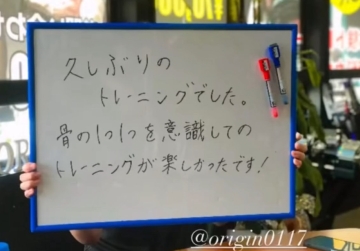 久しぶりの
トレーニングでした。
骨の1つ1つを意識しての
トレーニングが楽しかったです!
@origin0117